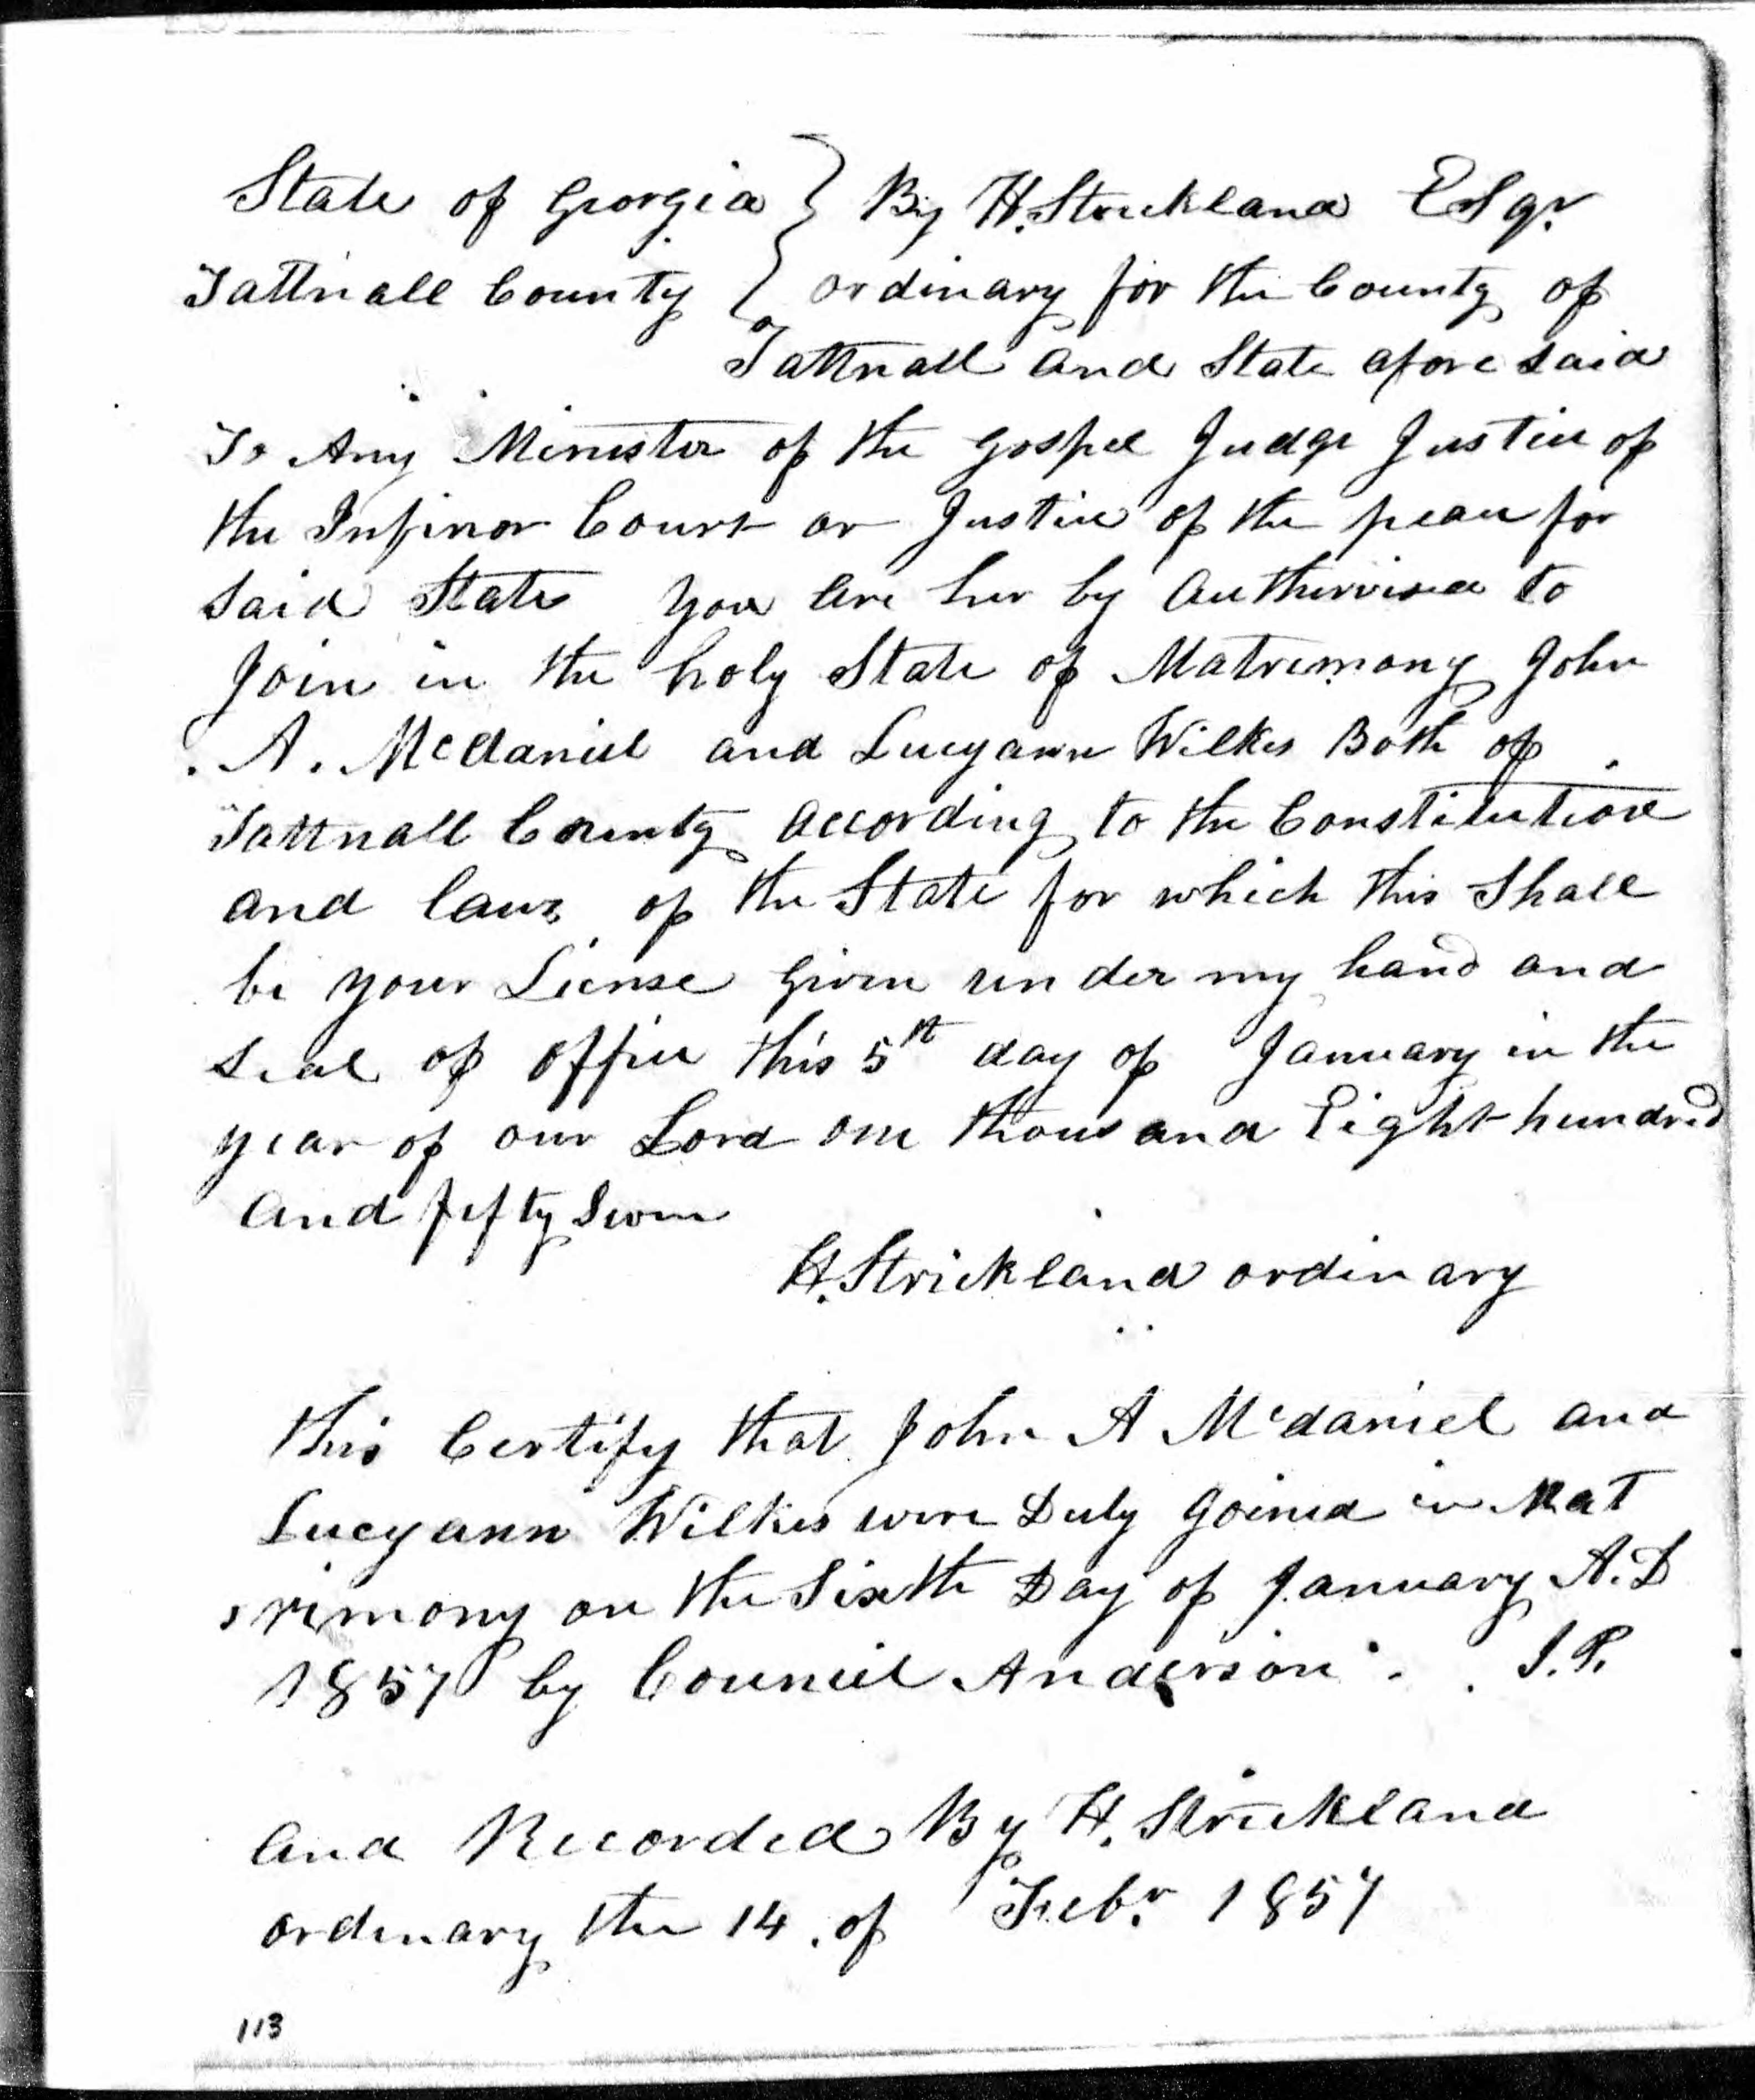 State of Georgia } By H. Strickland Esqr.
Tattnall County } ordinary for the County of
Tattnall and State afore said
To Any Minister of the Gospel Judge Justice of
the Inferior Court or Justice of the peace for
said State you are her by Authorised to
Join in the holy State of Matrimony John
A. McDaniel and Lucyann Wilkes Both of
Tattnall County according to the Constitution
and laws of the State for which this Shall
be your License Given under my hand and
seal of office this 5th day of January in the
year of our Lord one thousand Eight hundred
and fifty Seven
H. Strickland ordinary
this Certify that John A Mcdaniel and
Lucyann Wilkes were Duly Joined in Mat
rimony on the Sixth Day of January A.D
1857 by Council Anderson J.P.
and Recorded By H. Strickland
ordinary the 14 of Feby. 1857
113